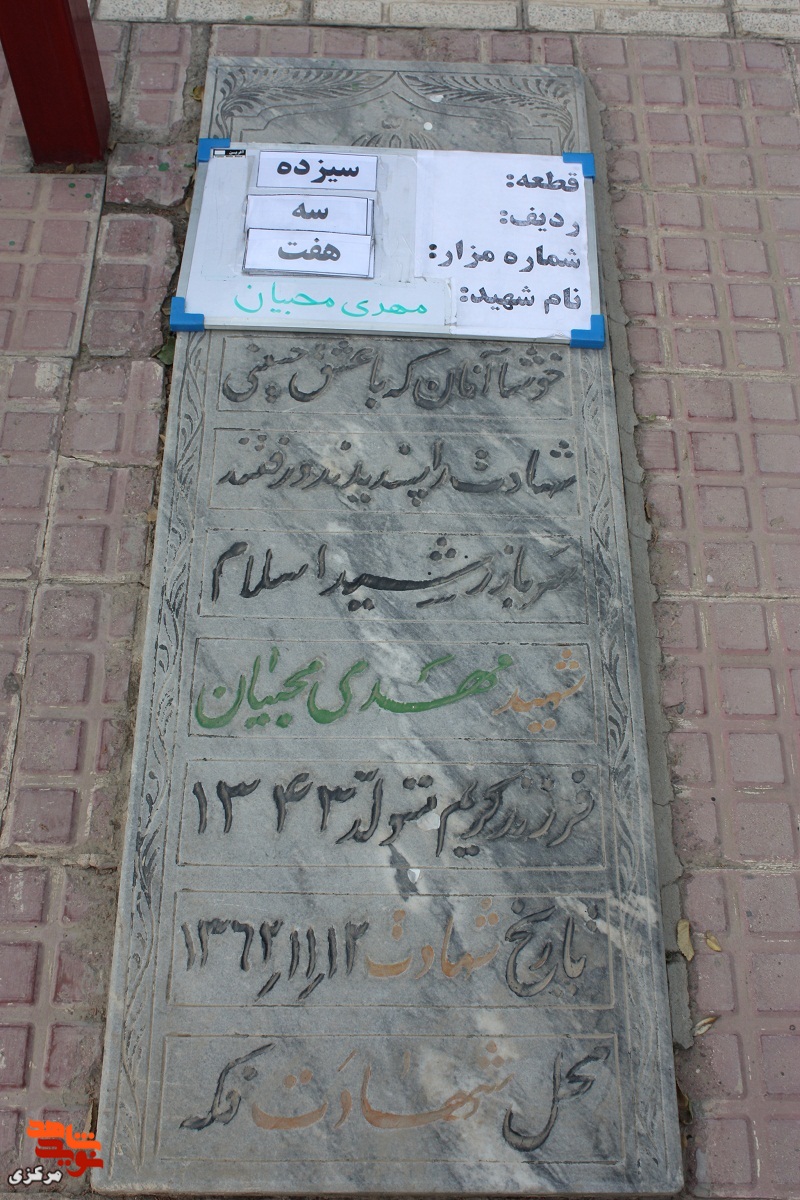 قطعه: سیزده
ردیف: سه
شماره مزار: هفت
نام شهید: مهدی محبیان
خوشا آنان که با عشق حسینی
شهادت را پسندیدند و رفتند
سرباز رشید اسلام
شهید مهدی محبیان
فرزند کریم متولد ۱۳۴۳
تاریخ شهادت ۱۳۶۲٫۱۱٫۱۲
محل شهادت فکه
نوید شاهد
مرکزی